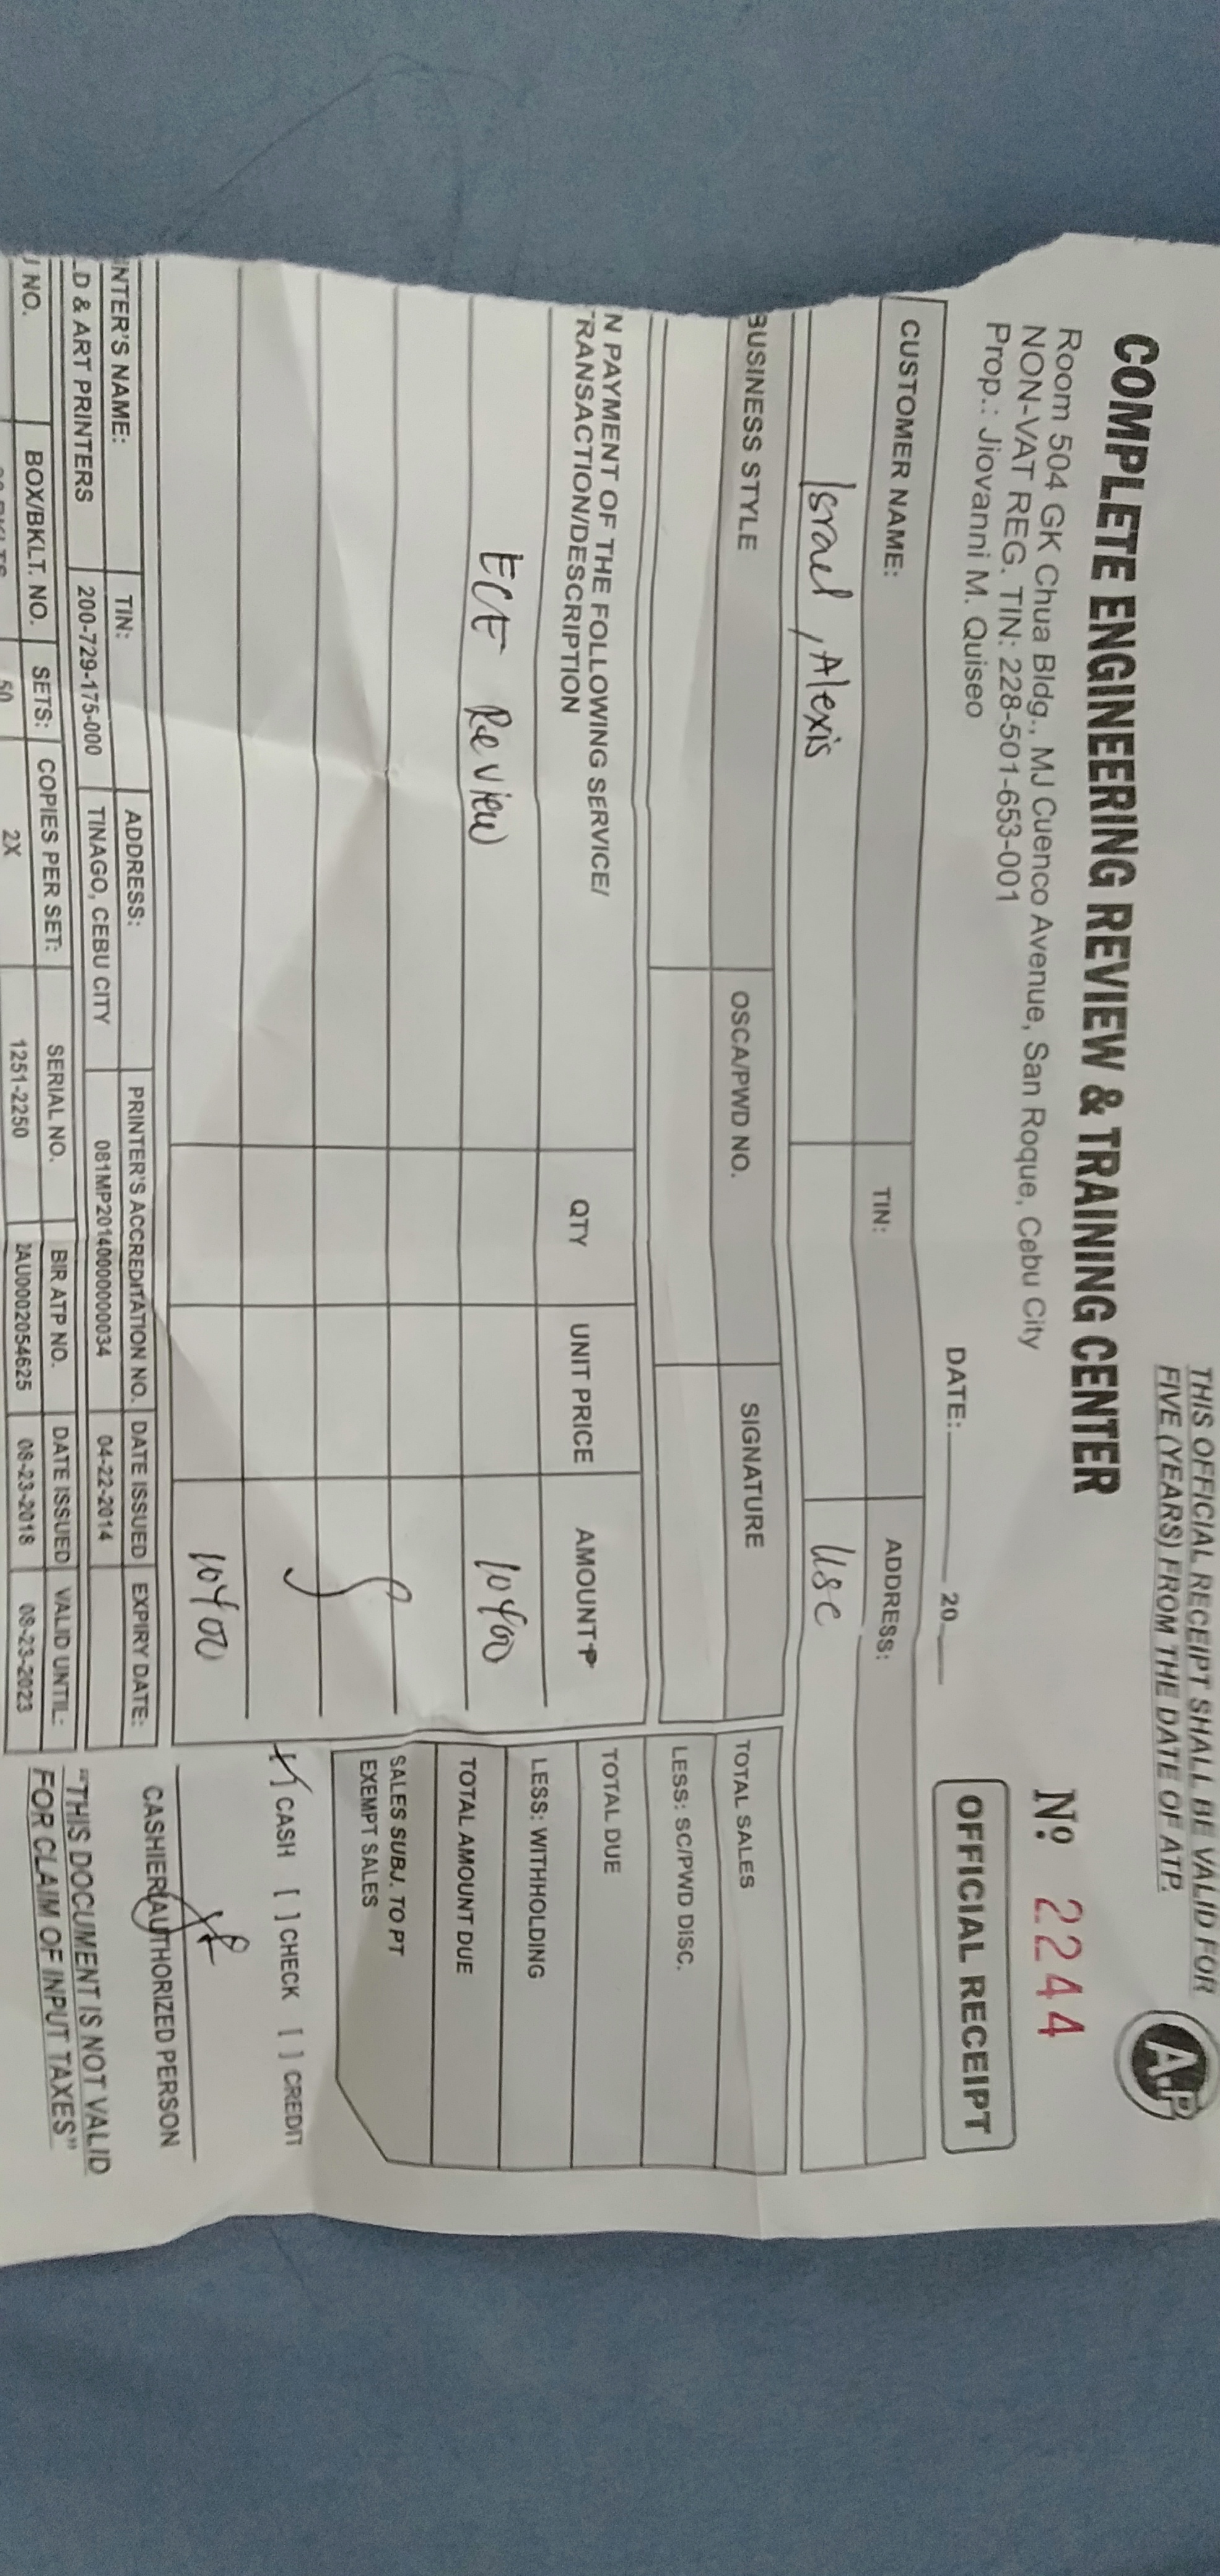 THIS OFFICIAL RECEIPT SHALL BE VALID FOR
FIVE (YEARS) FROM THE DATE OF ATP.
A.P
COMPLETE ENGINEERING REVIEW & TRAINING CENTER
Room 504 GK Chua Bldg., MJ Cuenco Avenue, San Roque, Cebu City
NON-VAT REG. TIN: 228-501-653-001
Prop.: Jiovanni M. Quiseo
Nº 2244
OFFICIAL RECEIPT
DATE:________ 20___
CUSTOMER NAME: TIN: ADDRESS:
Israel, Alexis USC
BUSINESS STYLE OSCA/PWD NO. SIGNATURE
N PAYMENT OF THE FOLLOWING SERVICE/
TRANSACTION/DESCRIPTION QTY UNIT PRICE AMOUNT ₱
ECE Review 10400
10400
TOTAL SALES
LESS: SC/PWD DISC.
TOTAL DUE
LESS: WITHHOLDING
TOTAL AMOUNT DUE
SALES SUBJ. TO PT
EXEMPT SALES
[✓] CASH [ ] CHECK [ ] CREDIT
CASHIER/AUTHORIZED PERSON
"THIS DOCUMENT IS NOT VALID
FOR CLAIM OF INPUT TAXES"
NTER'S NAME: TIN: ADDRESS: PRINTER'S ACCREDITATION NO. DATE ISSUED EXPIRY DATE:
LD & ART PRINTERS 200-729-175-000 TINAGO, CEBU CITY 081MP20140000000034 04-22-2014
NO. BOX/BKLT. NO. SETS: COPIES PER SET: SERIAL NO. BIR ATP NO. DATE ISSUED VALID UNTIL:
50 2X 1251-2250 2AU0002054625 08-23-2018 08-23-2023